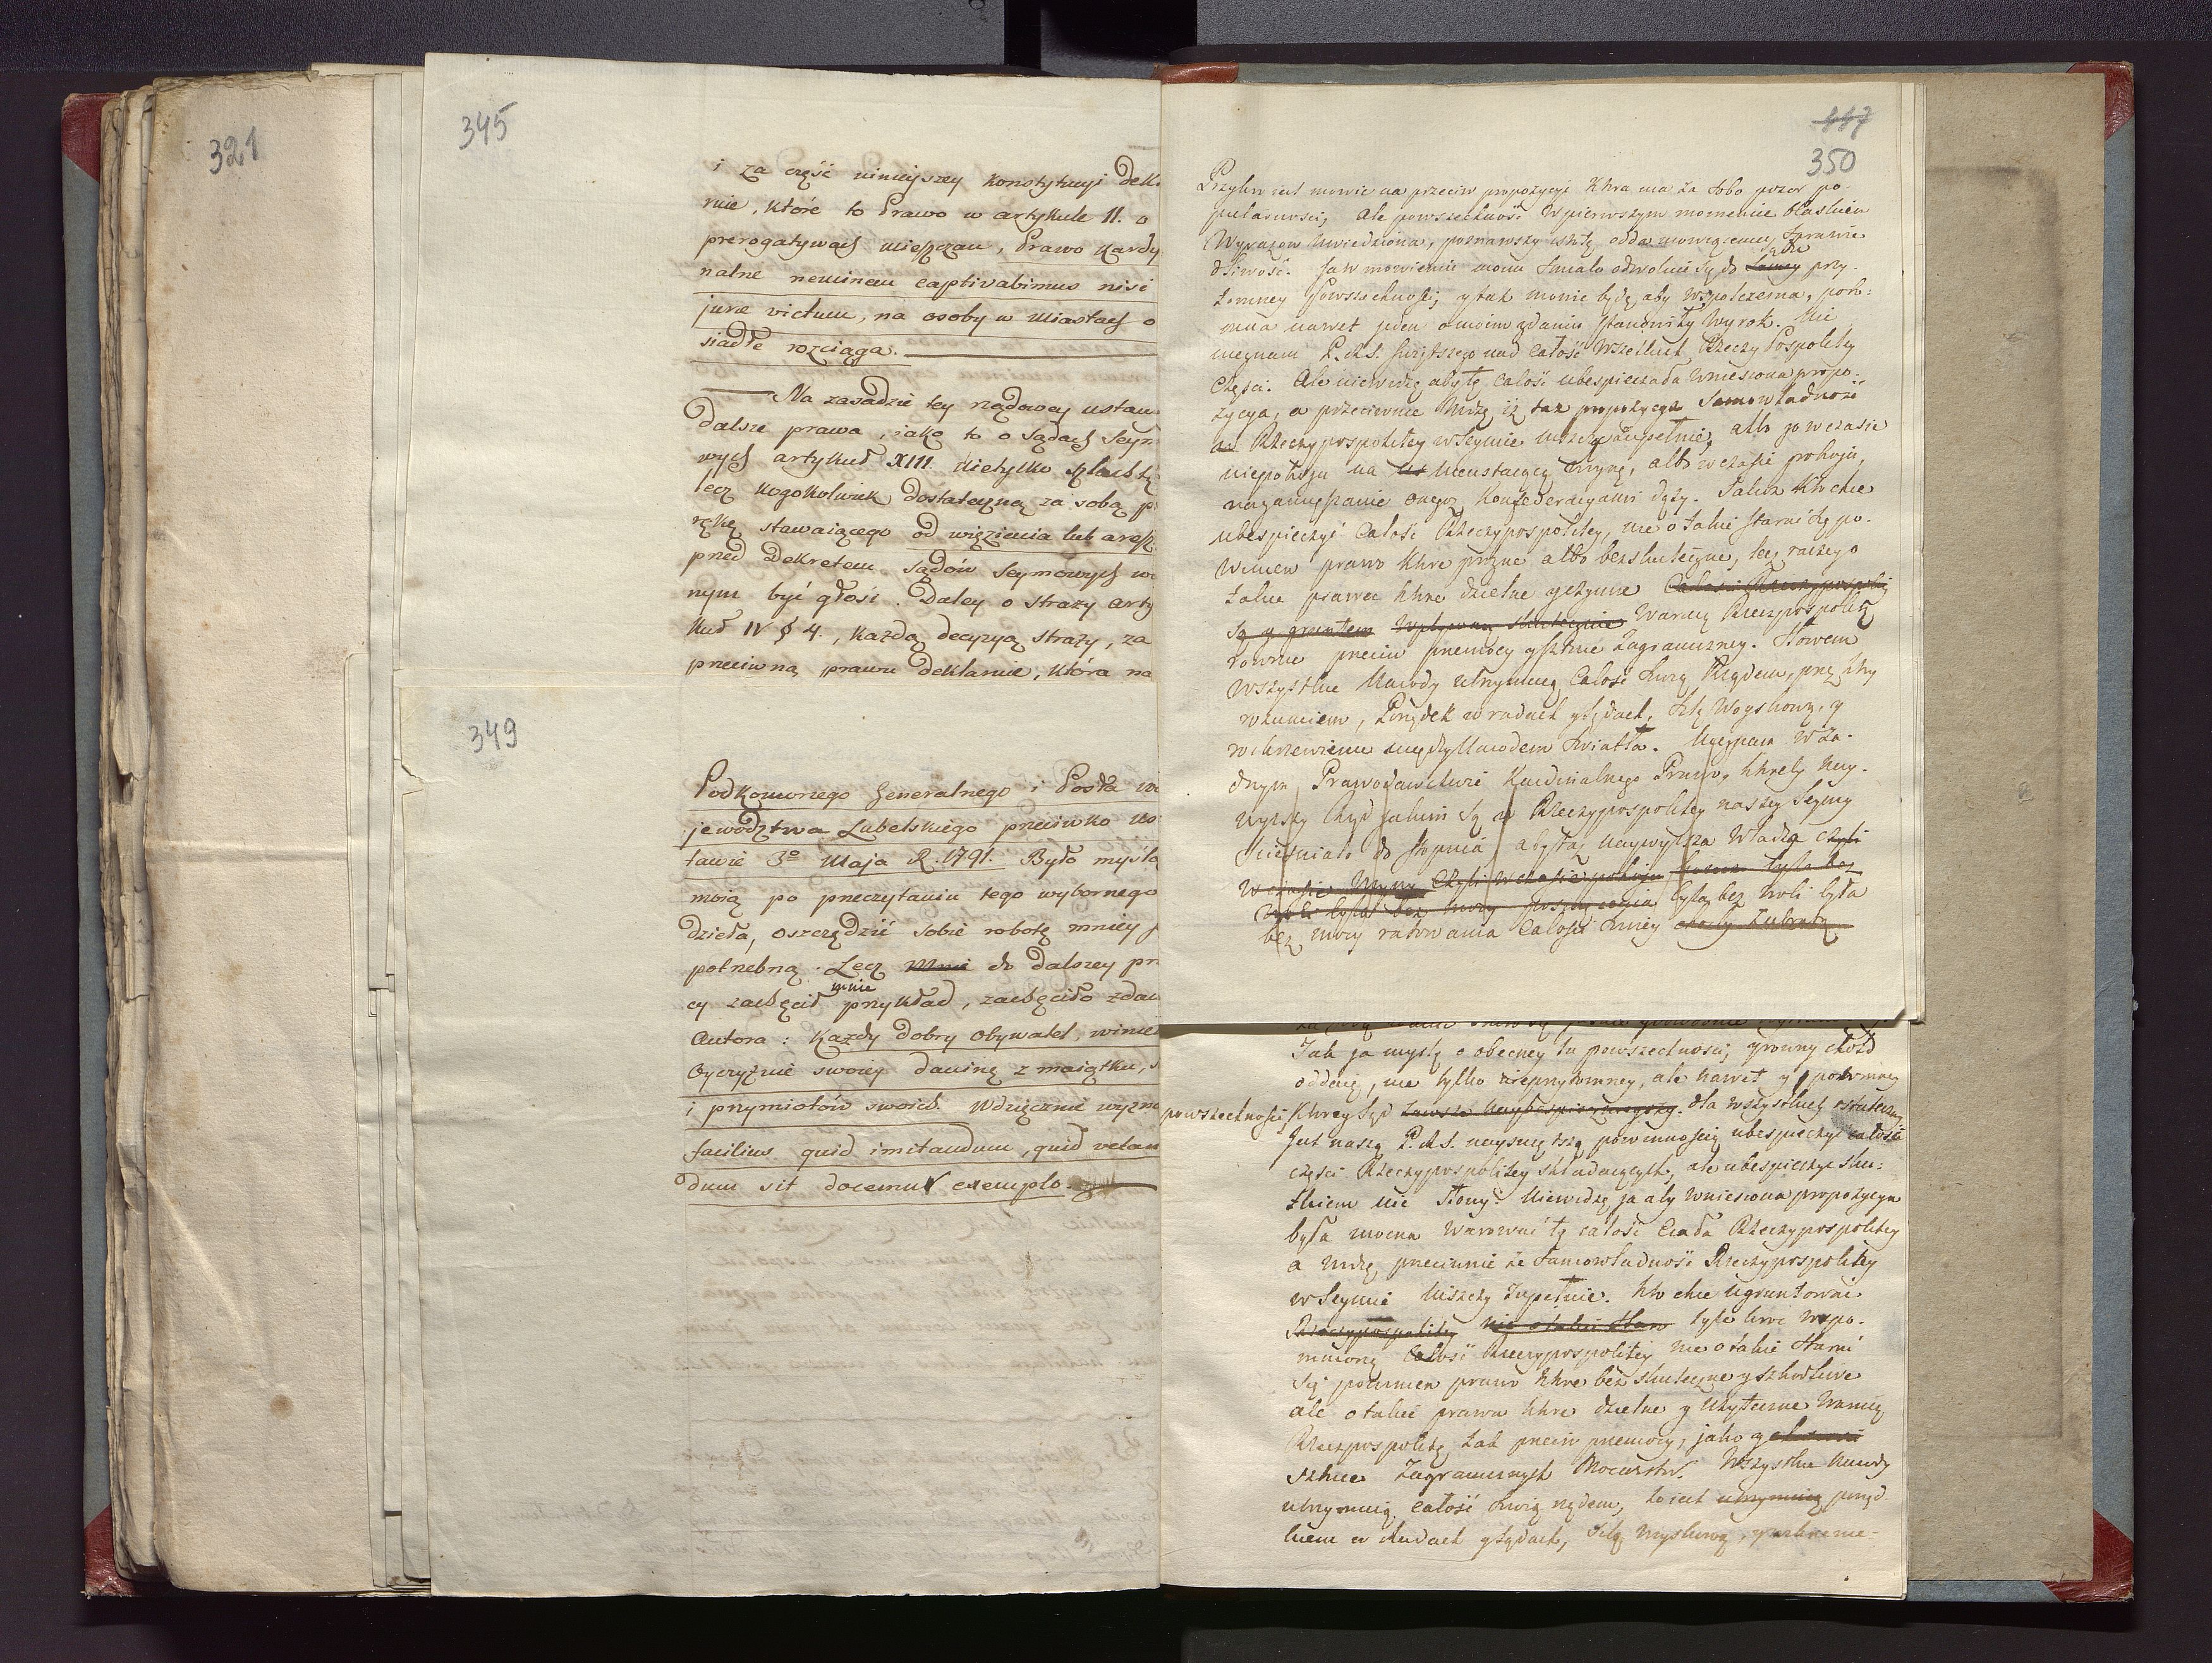 321
345
i za część ninieyszey Konstytucyi dekl
ruie, które to Prawo w artykule II. o
prerogatywach mieszczan, Prawo Kardy
nalne neminem captivabimus nisi
jure victum, na osoby w miastach o
siadłe rozciąga.
Na zasadzie tey rządowey ustaw
dalsze prawa, iako to o Sądach Seym
wych artykuł XIII. nietylko szlachtę
lecz kogokolwiek dostateczną za sobą p
rękę stawaiącego od więzienia lub aresz
przed Dekretem Sądów Seymowych wo
nym być głosi. Daley o straży arty
kuł IV § 4., każdą decyzyą straży, za
przeciwną prawu deklaruie, która na
349
Podkomorzego Generalnego i Posła wo
jewództwa Lubelskiego przeciwko us
tawie 3º Maja R. 1791. Było myśla
moią po przeczytaniu tego wybornego
dzieła, oszczędzić sobie robotę mniey p
potrzebną. Lecz mnie do dalszey pra
cy zachęcił mnie przykład, zachęciło zdan
Autora: Każdy dobry obywatel, winie
Oyczyznie swoiey daninę z maiątku, s
i przymiotów swoich. Wdzięcznie wyzna
facilius quid imitandum, quid vetan
dum sit docemur exemplo.
447
350
Przykro iest mowic na przeciw propozycyi ktura ma za sobą pozor po-
pularnosci, ale powszechność w pierwszym momencie
Wyrazow uwiedziona, poznawszy istotę odda mowiącemu sprawie
dliwość. Ja w mowieniu moim smiało odwołuię się do przy-
tomney Powszechności, y tak mowic będę, aby wspołczesna, poto-
mna nawet o moim zdaniu stanowiły Wyrok. Nic
nieznam P. M. S. swiętszego nad Całość Wszelkich Rzeczy Pospolitey
Części. Ale niewidzę aby tę całość ubespieczała wniesiona propo-
zycya, a przeciwnie widzę iż taż propozycya Samowładność
Rzeczypospolitey w Seymie niszczy zupełnie, albo ją w czasie
niepokoju na nieustaiącą , albo w czasie pokoju,
Konfederacyami . Kto chce
ubespieczyć Całość Rzeczypospolitey, nie o takie starać się po-
winien prawo które prozne albo bezskuteczne, lecz raczey o
takie prawa które dzielne Całosci Rzeczypospolitey
Są y gruntem Wpływaią skutecznie Rzeczpospolitę
rownie przeciw przemocy y sztuce Zagraniczney. Słowem
wszystkie Narody utrzymuią Całość swoią Rządem, przez ktory
rozumiem, Porządek w radach y sądach, siłę Woyskową, y
rozkrzewienie między Narodem swiatła. w ża-
dnym Prawodawstwie Kardynalnego Prawa, ktoreby nay-
wyższy Rząd jakim są w Rzeczypospolitey naszey Seymy
do stopnia, aby tąż naywyższa Władza czyli
w czasie czyli w czasie pokoju
była, bez woli była
bez mocy ratowania całości swoiey
Tak ja myślę o obecney tu powszechności,
oddaię, nie tylko nieprzytomney, ale nawet y potomney
powszechności, ktorey sąd zawsze dla wszystkich
Jest naszą P. M. S. powinnością ubespieczyć całość
części Rzeczypospolitey składaiących, ale ubespieczyć sku-
tkiem nie słowy. Niewidzę ja aby wniesiona propozycya
była mocna warować tę całość Ciała Rzeczypospolitey
a widzę przeciwnie że samowładność Rzeczypospolitey
w Seymie niszczy zupełnie. Kto chce ugruntować
Rzeczypospolitey nie o takie staw tyle kroć wspo-
mnioną Całość Rzeczypospolitey nie o takie starać
się powinien prawo które bezskuteczne y szkodliwe
ale o takie prawa które dzielne y użyteczne
Rzeczpospolitę tak przeciw przemocy, jako y
sztuce Zagranicznych Mocarstw. Wszystkie narody
utrzymuią całość swoią rządem, to iest utrzymuią porząd-
kiem w Radach y sądach, siłą woyskową,